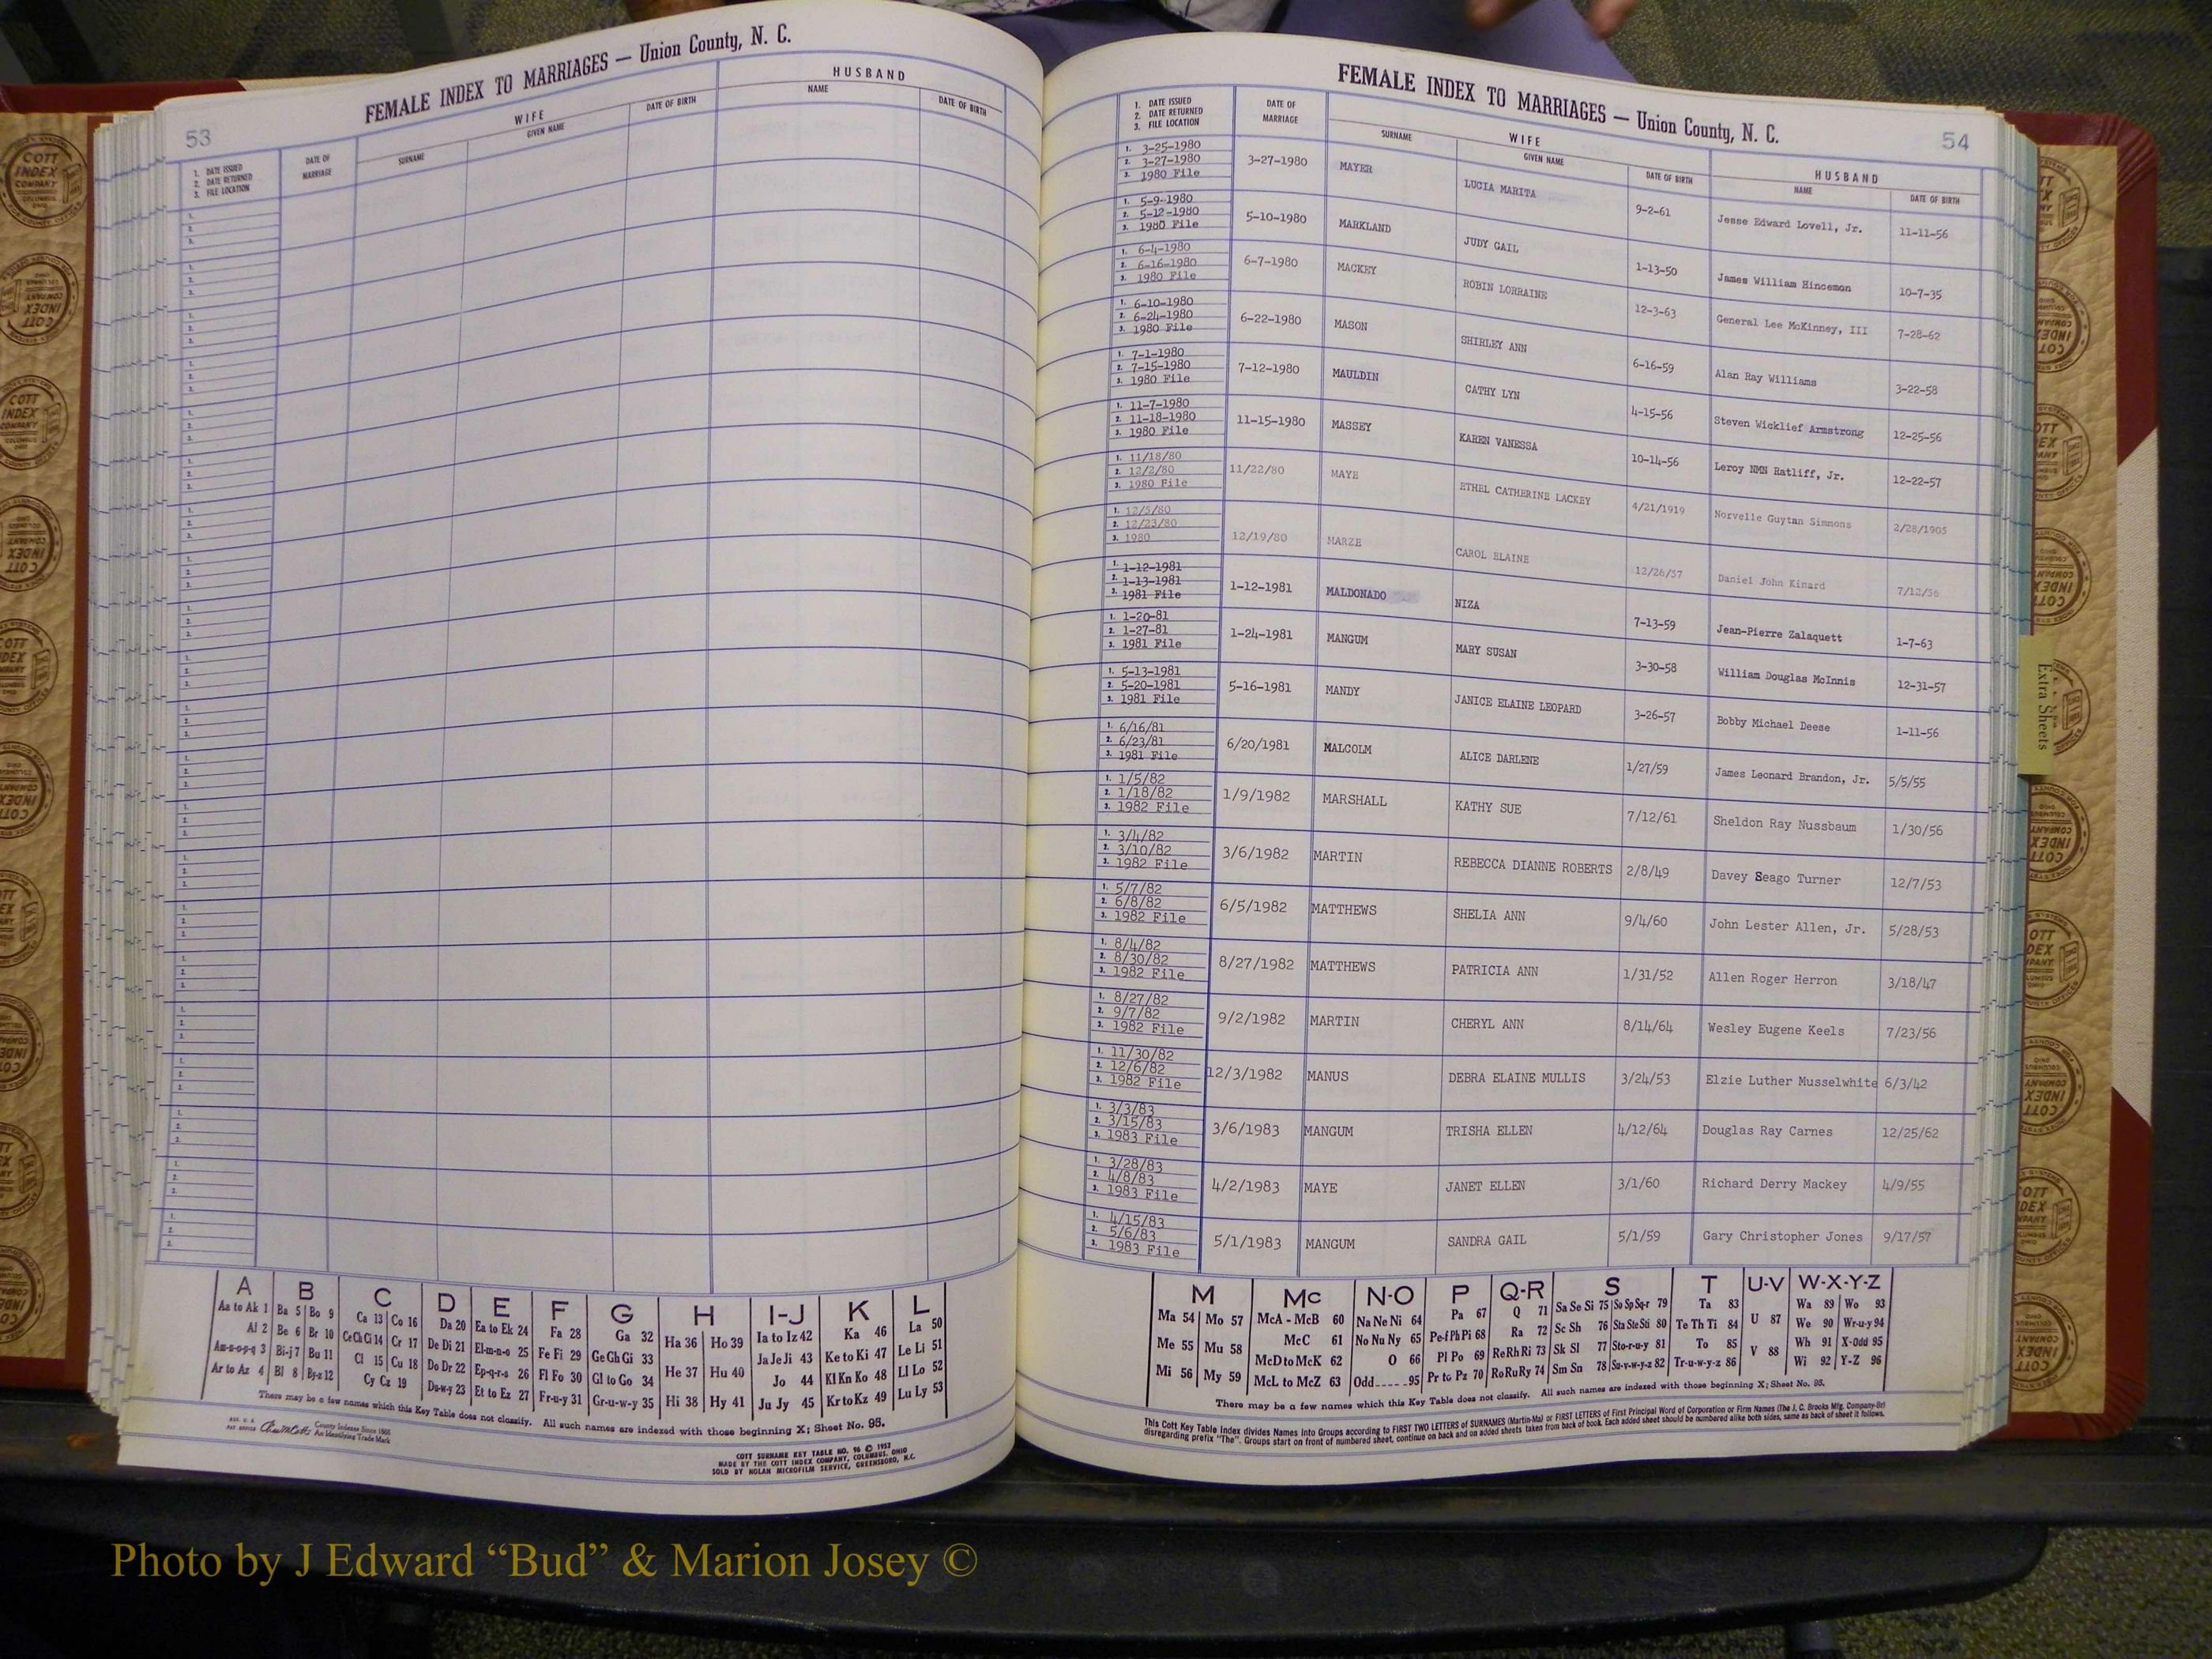 53
FEMALE INDEX TO MARRIAGES — Union County, N. C.
1. DATE ISSUED
2. DATE RETURNED
3. FILE LOCATION
DATE OF MARRIAGE
WIFE
SURNAME
GIVEN NAME
DATE OF BIRTH
HUSBAND
NAME
DATE OF BIRTH
A B C D E F G H I-J K L
Aa to Ak 1 Ba 5 Bo 9 Ca 13 Co 16 Da 20 Ea to Ek 24 Fa 28 Ga 32 Ha 36 Ho 39 Ia to Iz 42 Ka 46 La 50
Al 2 Be 6 Br 10 Ce Ch Ci 14 Cr 17 De Di 21 El-m-n-o 25 Fe Fi 29 Ge Gh Gi 33 He 37 Hu 40 Ja Je Ji 43 Ke to Ki 47 Le Li 51
Am-n-o-p-q 3 Bi-j 7 Bu 11 Cl 15 Cu 18 Do Dr 22 Ep-q-r-s 26 Fl Fo 30 Gl to Go 34 Hi 38 Hy 41 Jo 44 Kl Kn Ko 48 Ll Lo 52
Ar to Az 4 Bl 8 By-z 12 Cy Cz 19 Du-w-y 23 Et to Ez 27 Fr-u-y 31 Gr-u-w-y 35 Ju Jy 45 Kr to Kz 49 Lu Ly 53
There may be a few names which this Key Table does not classify. All such names are indexed with those beginning X; Sheet No. 95.
County Indexes Since 1888
An Identifying Trade Mark
COTT SURNAME KEY TABLE NO. 96 © 1957
MADE BY THE COTT INDEX COMPANY, COLUMBUS, OHIO
SOLD BY NOLAN MICROFILM SERVICE, GREENSBORO, N.C.
FEMALE INDEX TO MARRIAGES — Union County, N. C.
54
1. DATE ISSUED
2. DATE RETURNED
3. FILE LOCATION
DATE OF MARRIAGE
WIFE
SURNAME
GIVEN NAME
DATE OF BIRTH
HUSBAND
NAME
DATE OF BIRTH
1. 3-25-1980
2. 3-27-1980
3. 1980 File
3-27-1980 MAYER LUCIA MARITA 9-2-61 Jesse Edward Lovell, Jr. 11-11-56
1. 5-9-1980
2. 5-12-1980
3. 1980 File
5-10-1980 MARKLAND JUDY GAIL 1-13-50 James William Hincemon 10-7-35
1. 6-4-1980
2. 6-16-1980
3. 1980 File
6-7-1980 MACKEY ROBIN LORRAINE 12-3-63 General Lee McKinney, III 7-28-62
1. 6-10-1980
2. 6-24-1980
3. 1980 File
6-22-1980 MASON SHIRLEY ANN 6-16-59 Alan Ray Williams 3-22-58
1. 7-1-1980
2. 7-15-1980
3. 1980 File
7-12-1980 MAULDIN CATHY LYN 4-15-56 Steven Wicklief Armstrong 12-25-56
1. 11-7-1980
2. 11-18-1980
3. 1980 File
11-15-1980 MASSEY KAREN VANESSA 10-14-56 Leroy NMN Ratliff, Jr. 12-22-57
1. 11/18/80
2. 12/2/80
3. 1980 File
11/22/80 MAYE ETHEL CATHERINE LACKEY 4/21/1919 Norvelle Guytan Simmons 2/28/1905
1. 12/5/80
2. 12/23/80
3. 1980
12/19/80 MARZE CAROL ELAINE 12/26/57 Daniel John Kinard 7/12/56
1. 1-12-1981
2. 1-13-1981
3. 1981 File
1-12-1981 MALDONADO NIZA 7-13-59 Jean-Pierre Zalaquett 1-7-63
1. 1-20-81
2. 1-27-81
3. 1981 File
1-24-1981 MANGUM MARY SUSAN 3-30-58 William Douglas McInnis 12-31-57
1. 5-13-1981
2. 5-20-1981
3. 1981 File
5-16-1981 MANDY JANICE ELAINE LEOPARD 3-26-57 Bobby Michael Deese 1-11-56
1. 6/16/81
2. 6/23/81
3. 1981 File
6/20/1981 MALCOLM ALICE DARLENE 1/27/59 James Leonard Brandon, Jr. 5/5/55
1. 1/5/82
2. 1/18/82
3. 1982 File
1/9/1982 MARSHALL KATHY SUE 7/12/61 Sheldon Ray Nussbaum 1/30/56
1. 3/4/82
2. 3/10/82
3. 1982 File
3/6/1982 MARTIN REBECCA DIANNE ROBERTS 2/8/49 Davey Seago Turner 12/7/53
1. 5/7/82
2. 6/8/82
3. 1982 File
6/5/1982 MATTHEWS SHELIA ANN 9/4/60 John Lester Allen, Jr. 5/28/53
1. 8/4/82
2. 8/30/82
3. 1982 File
8/27/1982 MATTHEWS PATRICIA ANN 1/31/52 Allen Roger Herron 3/18/47
1. 8/27/82
2. 9/7/82
3. 1982 File
9/2/1982 MARTIN CHERYL ANN 8/14/64 Wesley Eugene Keels 7/23/56
1. 11/30/82
2. 12/6/82
3. 1982 File
12/3/1982 MANUS DEBRA ELAINE MULLIS 3/24/53 Elzie Luther Musselwhite 6/3/42
1. 3/3/83
2. 3/15/83
3. 1983 File
3/6/1983 MANGUM TRISHA ELLEN 4/12/64 Douglas Ray Carnes 12/25/62
1. 3/28/83
2. 4/8/83
3. 1983 File
4/2/1983 MAYE JANET ELLEN 3/1/60 Richard Derry Mackey 4/9/55
1. 4/15/83
2. 5/6/83
3. 1983 File
5/1/1983 MANGUM SANDRA GAIL 5/1/59 Gary Christopher Jones 9/17/57
M Mc N-O P Q-R S T U-V W-X-Y-Z
Ma 54 Mo 57 McA - McB 60 Na Ne Ni 64 Pa 67 Q 71 Sa Se Si 75 So Sp Sq-r 79 Ta 83 U 87 Wa 89 Wo 93
Me 55 Mu 58 McC 61 No Nu Ny 65 Pe-f Ph Pi 68 Ra 72 Sc Sh 76 Sta Ste Sti 80 Te Th Ti 84 V 88 We 90 Wr-u-y 94
Mi 56 My 59 McD to McK 62 O 66 Pl Po 69 Re Rh Ri 73 Sk Sl 77 Sto-r-u-y 81 To 85 Wh 91 X-Odd 95
McL to McZ 63 Odd 95 Pr to Pz 70 Ro Ru Ry 74 Sm Sn 78 Su-v-w-y-z 82 Tr-u-w-y-z 86 Wi 92 Y-Z 96
There may be a few names which this Key Table does not classify. All such names are indexed with those beginning X; Sheet No. 95.
This Cott Key Table Index divides Names into Groups according to FIRST TWO LETTERS of SURNAMES (Martin-Ma) or FIRST LETTERS of First Principal Word of Corporation or Firm Names (The J. C. Brooks Mfg. Company-Br)
disregarding prefix "The". Groups start on front of numbered sheet, continue on back and on added sheets taken from back of book. Each added sheet should be numbered alike both sides, same as back of sheet it follows.
Extra Sheets
COTT INDEX COMPANY COLUMBUS OHIO
Photo by J Edward “Bud” & Marion Josey ©